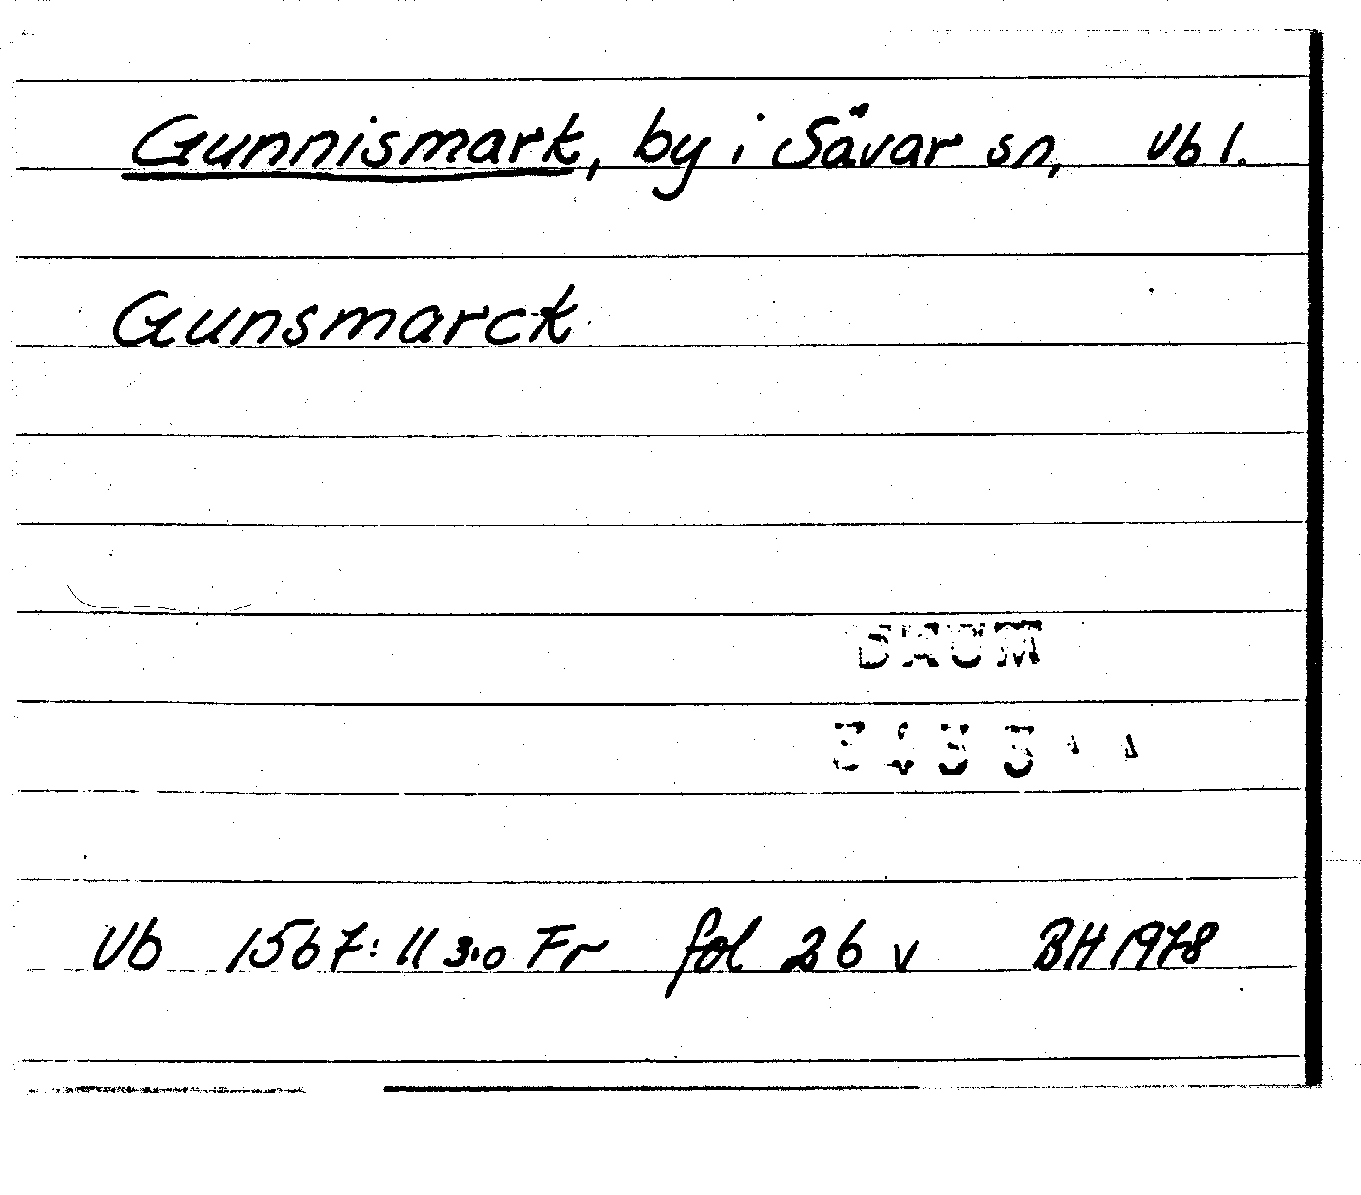 Gunnismark, by i Sävar sn, Vb l.
Gunsmarck
DAUM
Vb 1567: 11 3:o Fr fol 26 v BH 1978